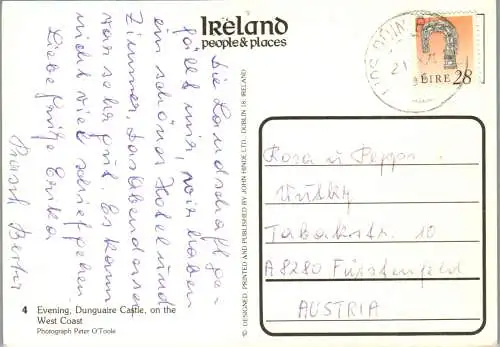 Ireland
people & places
Die Landschaft ge-
fällt mir, wir haben
ein schönes Hotel und
Zimmer, das Abendessen
war sehr gut. Es kann
nicht viel schief gehen
Liebe Grüße Erika
4 Evening, Dunguaire Castle, on the
West Coast
Photograph Peter O'Toole
© DESIGNED PRINTED AND PUBLISHED BY JOHN HINDE LTD., DUBLIN 18, IRELAND
ÉIRE 28
Rosa u
Tabakstr. 10
A 8280 Fürstenfeld
AUSTRIA